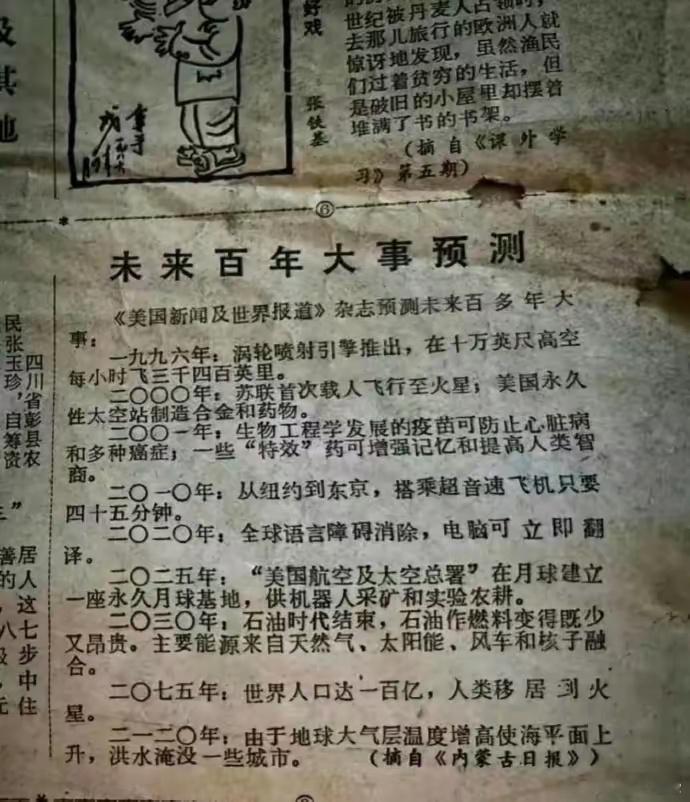 好戏
张铁基
世纪被丹麦人占领时，
去那儿旅行的欧洲人就
惊讶地发现，虽然渔民
们过着贫穷的生活，但
是破旧的小屋里却摆着
堆满了书的书架。
（摘自《课外学
习》第五期）
⑥
未来百年大事预测
《美国新闻及世界报道》杂志预测未来百多年大
事：
一九九六年：涡轮喷射引擎推出，在十万英尺高空
每小时飞三千四百英里。
二〇〇〇年：苏联首次载人飞行至火星；美国永久
性太空站制造合金和药物。
二〇〇一年：生物工程学发展的疫苗可防止心脏病
和多种癌症；一些“特效”药可增强记忆和提高人类智
商。
二〇一〇年：从纽约到东京，搭乘超音速飞机只要
四十五分钟。
二〇二〇年：全球语言障碍消除，电脑可立即翻
译。
二〇二五年：“美国航空及太空总署”在月球建立
一座永久月球基地，供机器人采矿和实验农耕。
二〇三〇年：石油时代结束，石油作燃料变得既少
又昂贵。主要能源来自天然气、太阳能、风车和核子融
合。
二〇七五年：世界人口达一百亿，人类移居到火
星。
二一二〇年：由于地球大气层温度增高使海平面上
升，洪水淹没一些城市。（摘自《内蒙古日报》）
四川省彭县农
民张玉珍，自筹资
其
地
善居
的人
，这
八七
级步
，中
元住